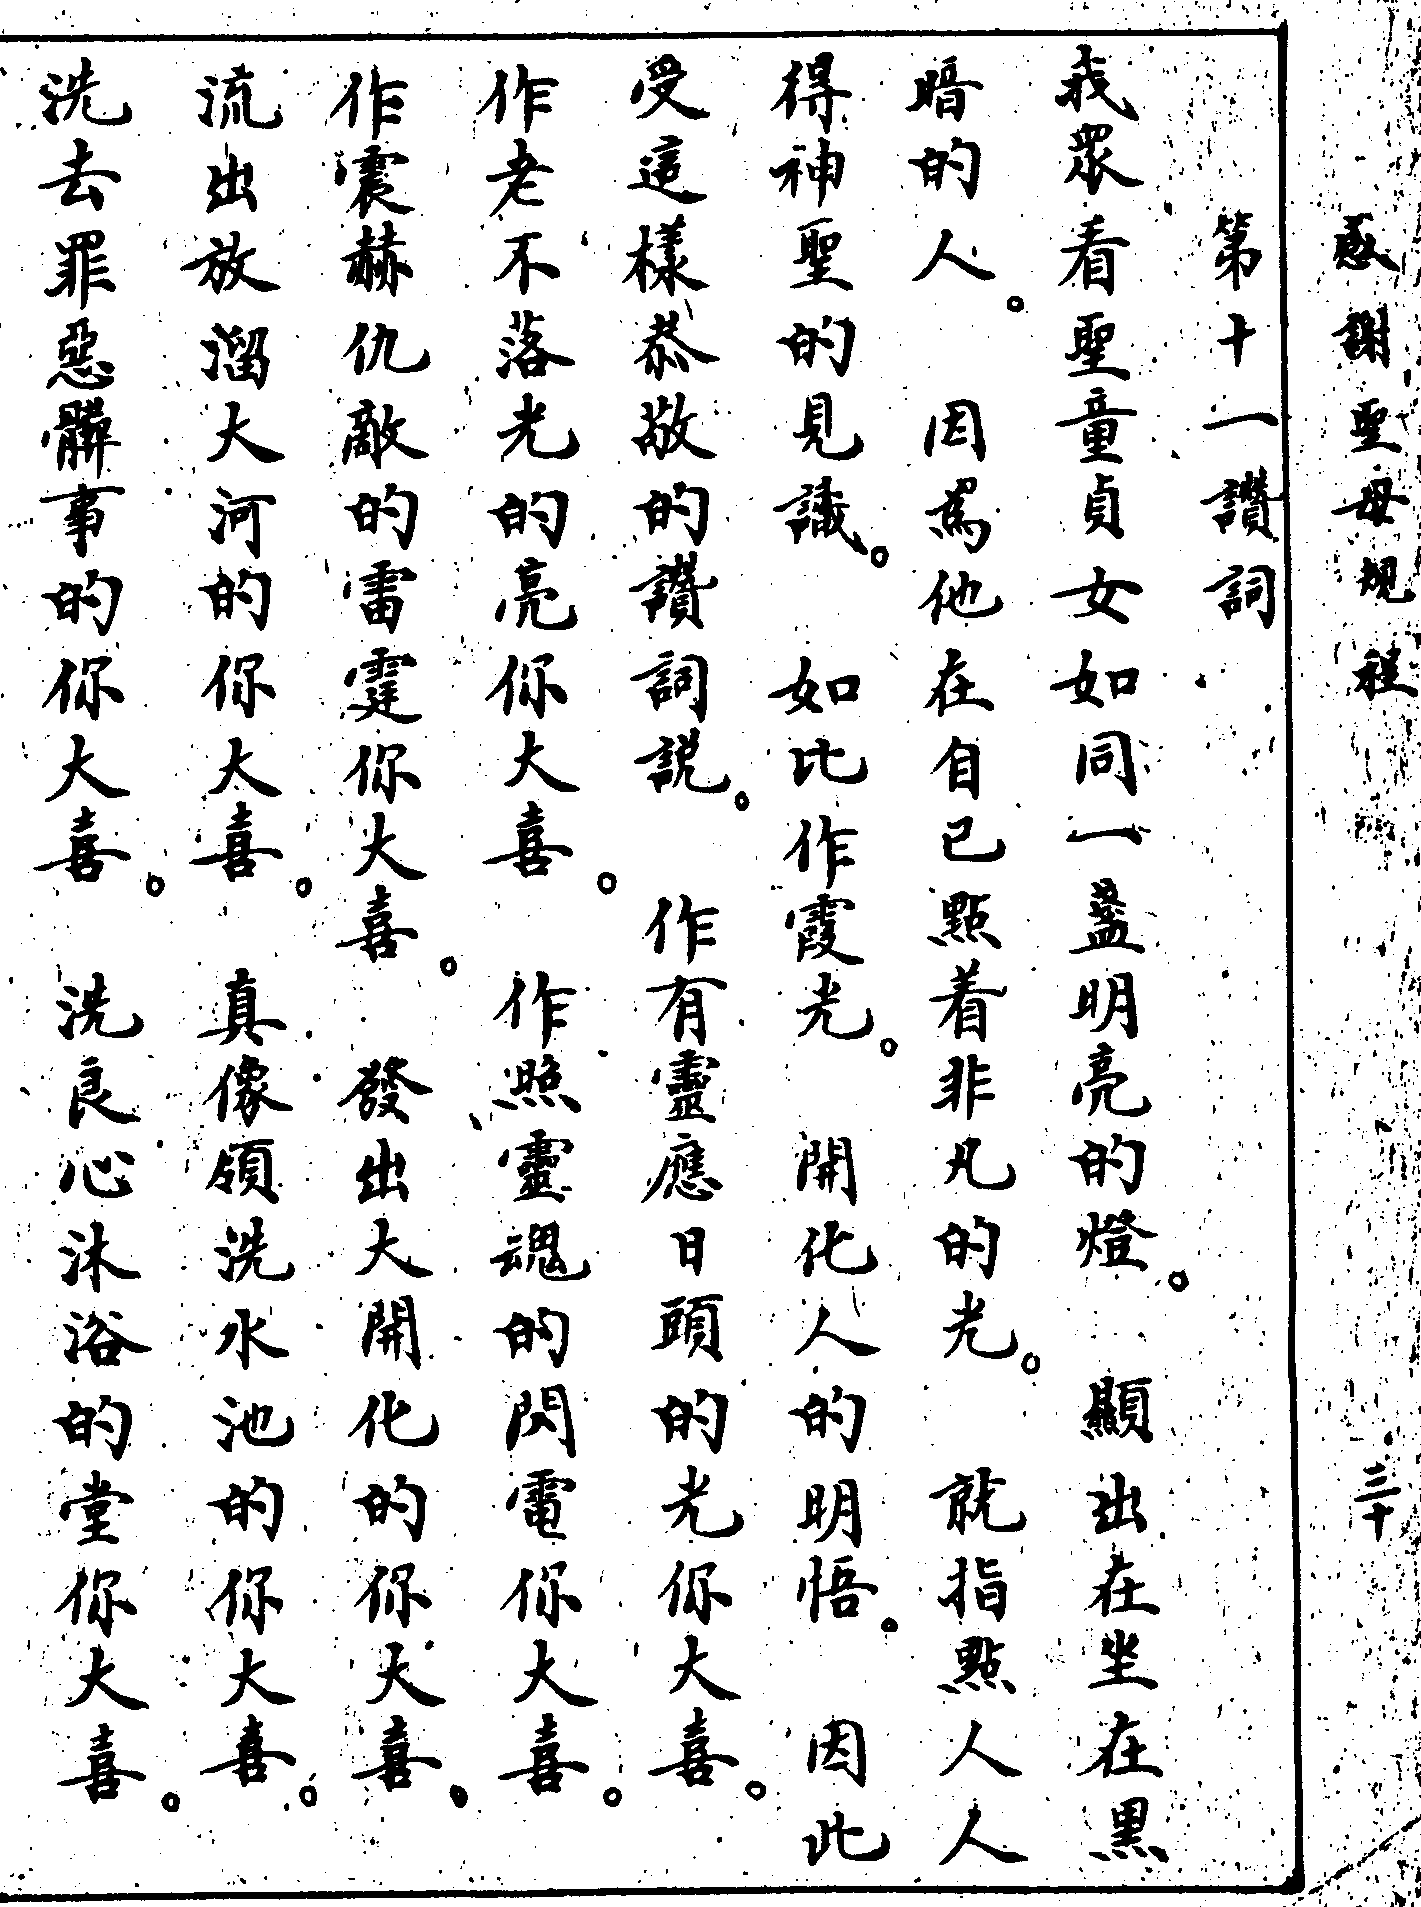 感謝聖母規程 三十
第十一讚詞
我眾看聖童貞女如同一盞明亮的燈。顯出在坐在黑
暗的人。因為他在自己點着非凡的光。就指點人人
得神聖的見識。如比作霞光。開化人的明悟。因此
受這樣恭敬的讚詞說。作有靈應日頭的光你大喜。
作老不落光的亮你大喜。作照靈魂的閃電你大喜。
作震赫仇敵的雷霆你大喜。發出大開化的你大喜。
流出放溜大河的你大喜。真像領洗水池的你大喜。
洗去罪惡髒事的你大喜。洗良心沐浴的堂你大喜。